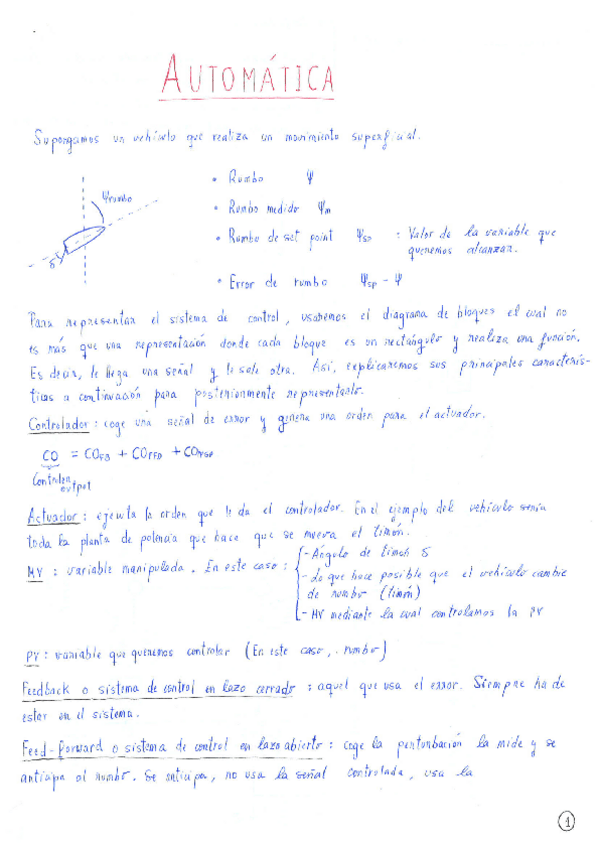 AUTOMÁTICA
Supongamos un vehículo que realiza un movimiento superficial.
Ψrumbo
δ
• Rumbo Ψ
• Rumbo medido Ψm
• Rumbo de set point Ψsp : Valor de la variable que
queremos alcanzar.
• Error de rumbo Ψsp - Ψ
Para representar el sistema de control, usaremos el diagrama de bloques el cual no
es más que una representación donde cada bloque es un rectángulo y realiza una función.
Es decir, le llega una señal y le sale otra. Así, explicaremos sus principales caracterís-
ticas a continuación para posteriormente representarlo.
Controlador: coge una señal de error y genera una orden para el actuador.
CO = COFB + COFFD + COFFSP
Controller
output
Actuador: ejecuta la orden que le da el controlador. En el ejemplo del vehículo sería
toda la planta de potencia que hace que se mueva el timón.
MV: variable manipulada. En este caso:
- Ángulo de timón δ
- Lo que hace posible que el vehículo cambie
de rumbo (timón)
- MV mediante la cual controlamos la PV
PV: variable que queremos controlar (En este caso, rumbo)
Feedback o sistema de control en lazo cerrado: aquel que usa el error. Siempre ha de
estar en el sistema.
Feed-forward o sistema de control en lazo abierto: coge la perturbación la mide y se
anticipa al rumbo. Se anticipa, no usa la señal controlada, usa la
1